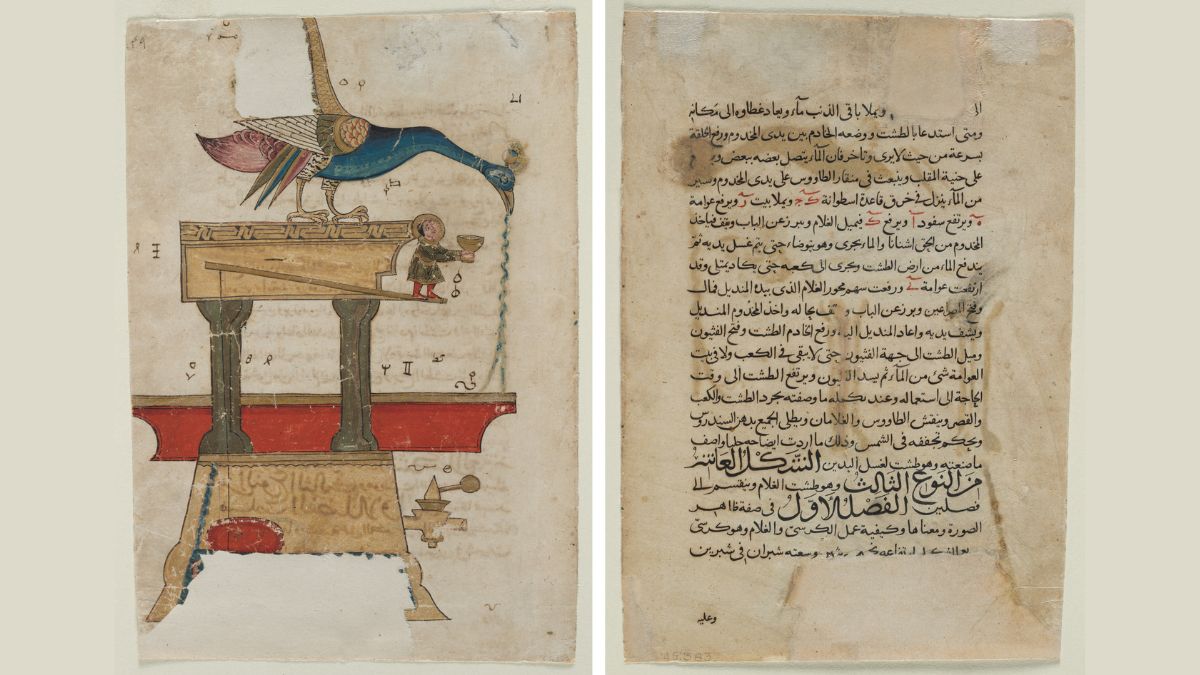 ويملا باقي الذنب ماء ويعاد غطاوه الى مكانه
ومتى استدعا بالطشت وضعه الخادم بين يدى المخدوم ورفع الحلقة
بسرعة من حيث لا يرى وتاخر فان الماء يتصل بعضه ببعض
على حنية المقلب وينبعث فى منقار الطاووس على يدى المخدوم ويسير
من الماء ينزل فى خرق قاعدة اسطوانة ويملا بيت ويرفع عوامة
ويرتفع سفود ا ويرفع فيميل الغلام ويبرز عن الباب ويقف فياخذ
المخدوم من الحق اشنانا والماء يجرى وهو يتوضا حتى يتم غسل يديه ثم
يندفع الماء من ارض الطشت ويجرى الى كعبه حتى يكاد يمتلى وقد
ارتفعت عوامة ورفعت سهم محور الغلام الذى بيده المنديل فمال
وفتح المصراعين وبرز عن الباب بحاله واخذ المخدوم المنديل
ونشف يديه واعاد المنديل اليه ورفع الخادم الطشت وفتح الفثيون
وميل الطشت الى جهة الفثيون حتى لا يبقى فى الكعب ولا فى بيت
العوامة شئ من الماء ثم يسد الفثيون ويرتفع الطشت الى وقت
الحاجة الى استعماله وعند تكمله ما وصفته يجرد الطشت والكعب
والقصر وينقش الطاووس والغلامان ويطلى الجميع بدهن السندروس
ويحكم تجفيفه فى الشمس وذلك ما اردت ايضاحه
ما صنعته وهو طشت لغسل اليدين الشكل العاشر
من النوع الثالث وهو طشت الغلام وينقسم الى
فصلين الفصل الاول فى صفة ظاهر
الصورة ومعناها وكيفية عمل الكرسى والغلام وهو كرسى
وسعته شبران فى شبرين
وعليه
45.383